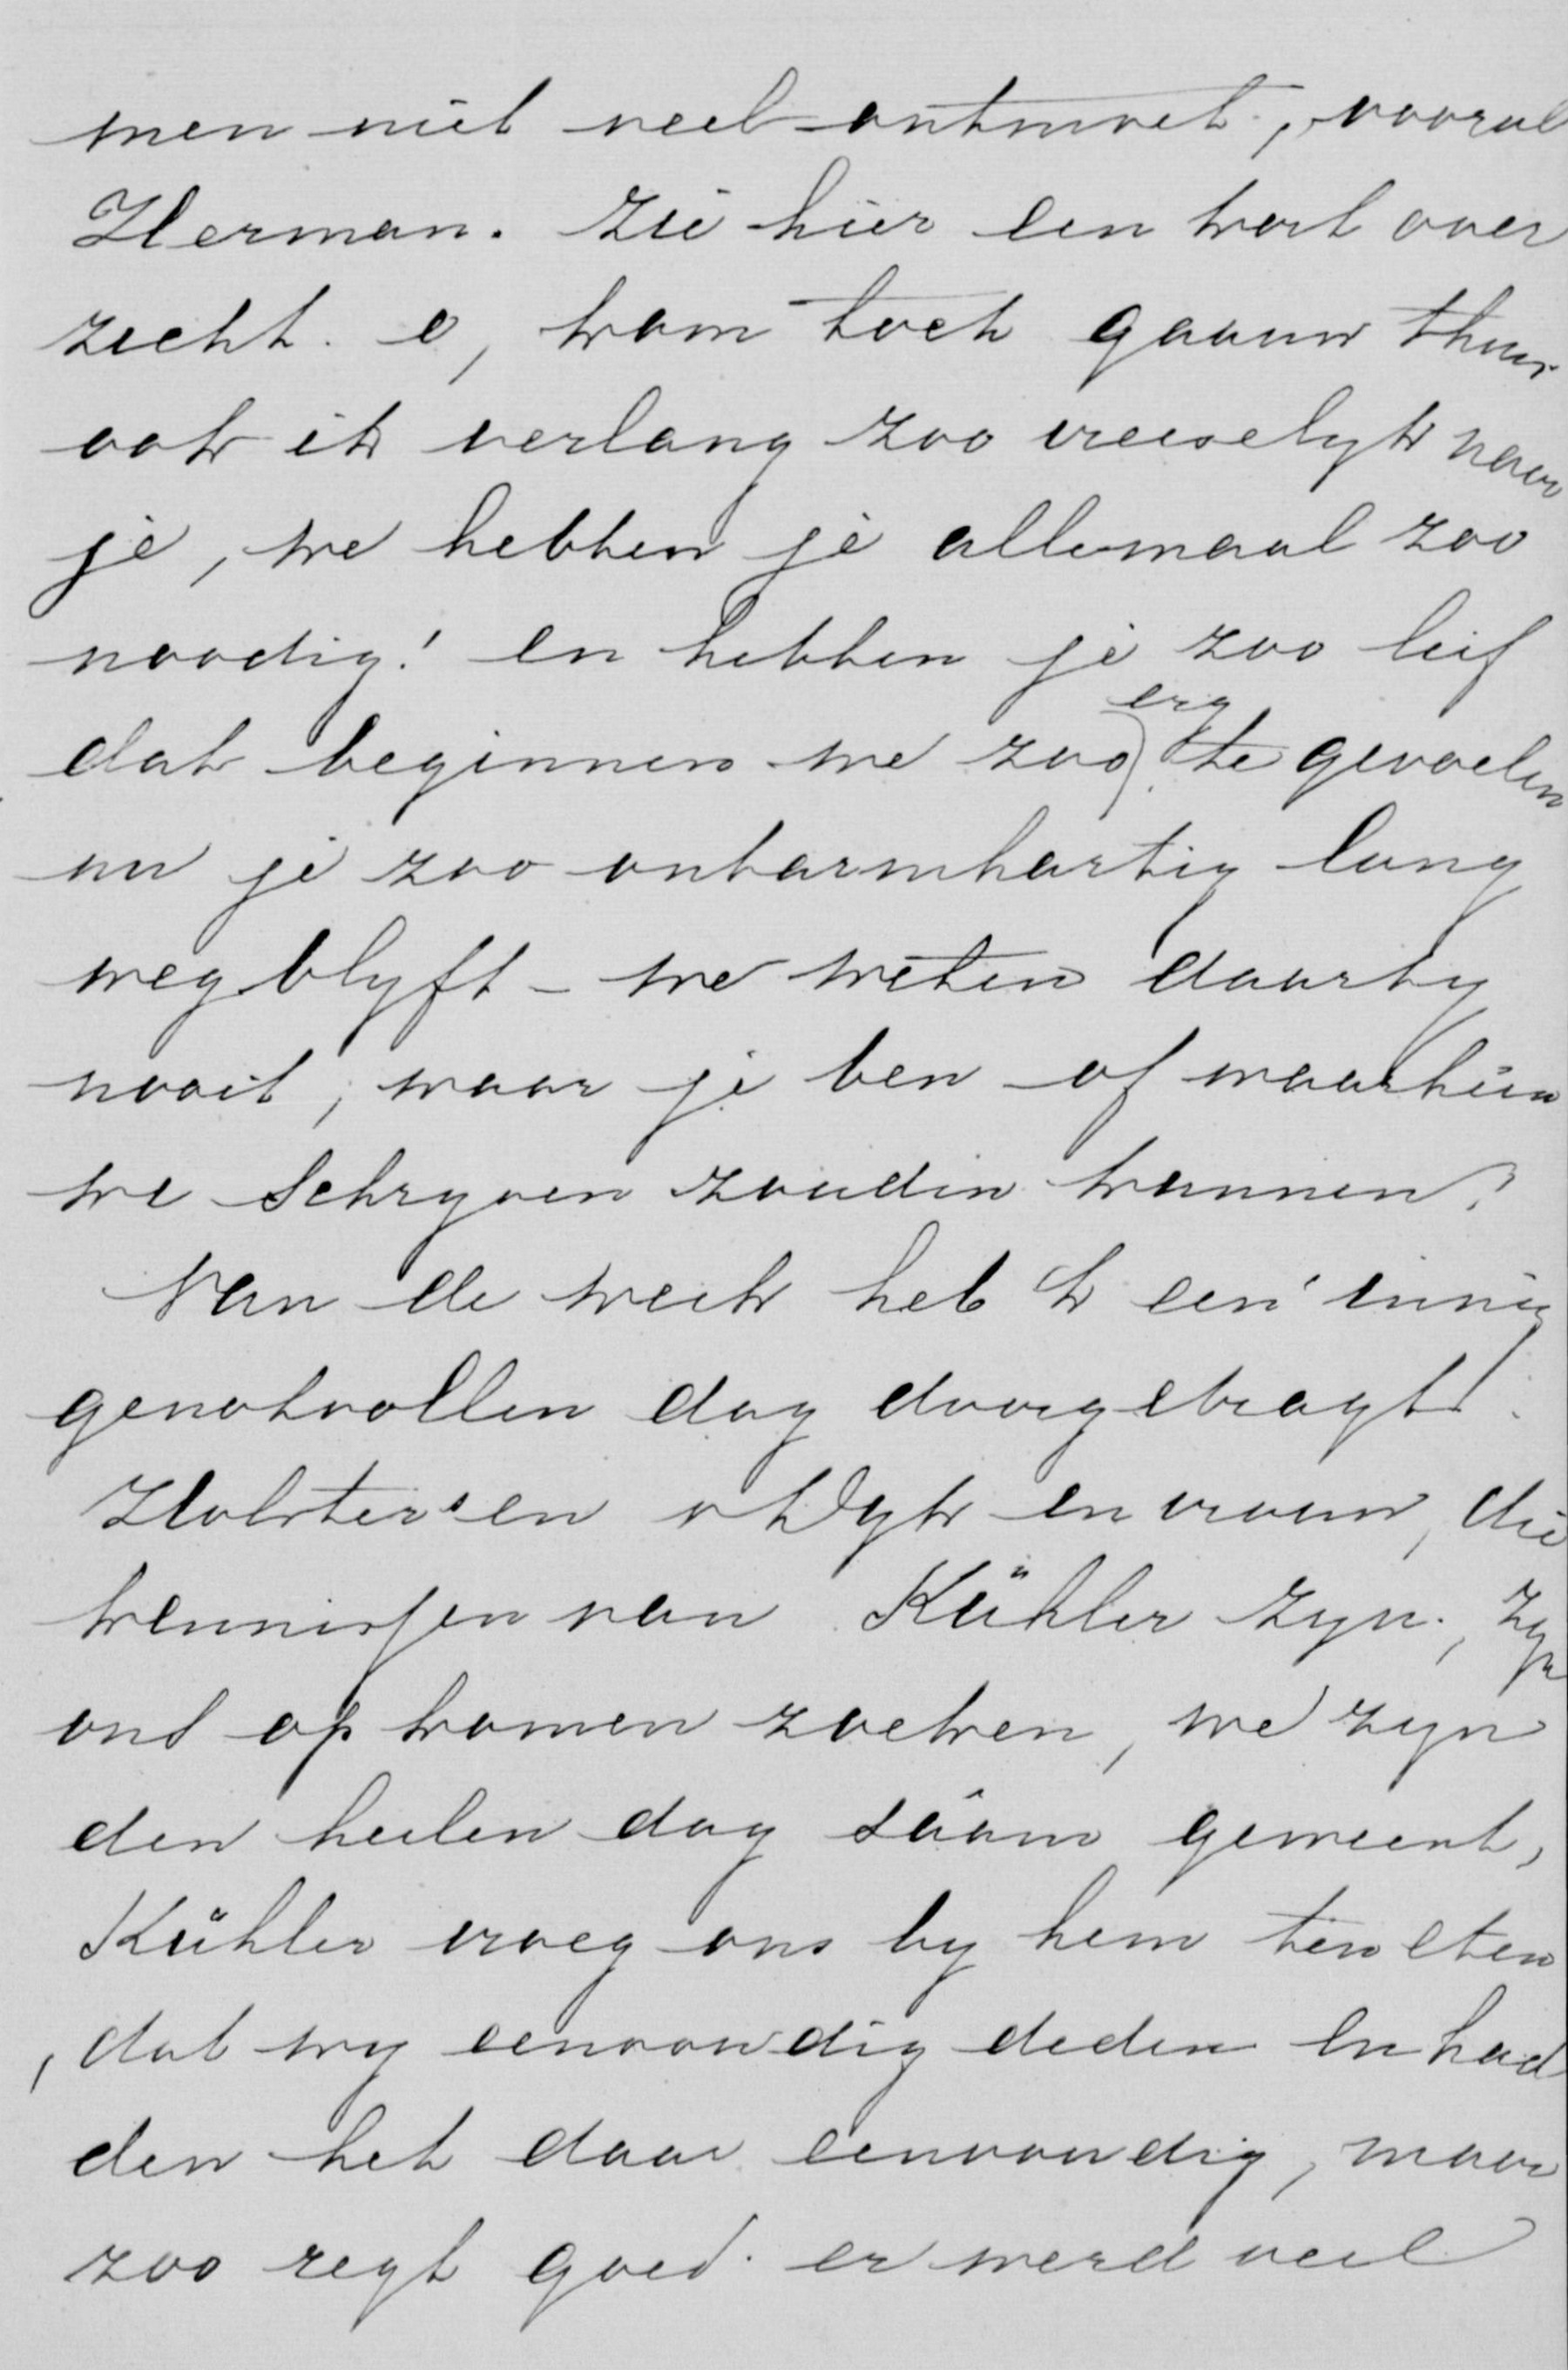 men niet veel ontmoet, vooral
Herman. Zie hier een kort over
zicht. o, kom toch gauw thuis
ook ik verlang zoo vreeselyk naar
je, we hebben je allemaal zoo
noodig! en hebben je zoo lief
dat beginnen we zoo erg te gevoelen
nu je zoo onbarmhartig lang
weg blyft – we weten daarby
nooit, waar je ben of waarheen
we schryven zouden kunnen!
Van de week heb 'k een innig
genotvollen dag doorgebragt!
Holst en v Dyk en vrouw, die
kennissen van Kühler zyn, zyn
ons op komen zoeken, we zyn
den heelen dag sâam geweest,
Kühler vroeg ons by hem ten eten
, dat wy eenvoudig deden en had
den het daar eenvoudig, maar
zoo regt goed. er werd veel